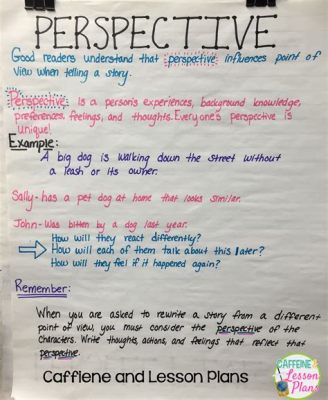 PERSPECTIVE
Good readers understand that perspective influences point of
view when telling a story.
Perspective is a person's experiences, background knowledge,
preferences, feelings, and thoughts. Everyone's perspective is
unique!
Example:
A big dog is walking down the street without
a leash or its owner.
Sally- has a pet dog at home that looks similar.
John- Was bitten by a dog last year.
How will they react differently?
How will each of them talk about this later?
How will they feel if it happened again?
Remember:
When you are asked to rewrite a story from a different
point of view, you must consider the perspective of the
characters. Write thoughts, actions, and feelings that reflect that
perspective.
Caffiene and Lesson Plans
CAFFEINE &
Lesson
Plans